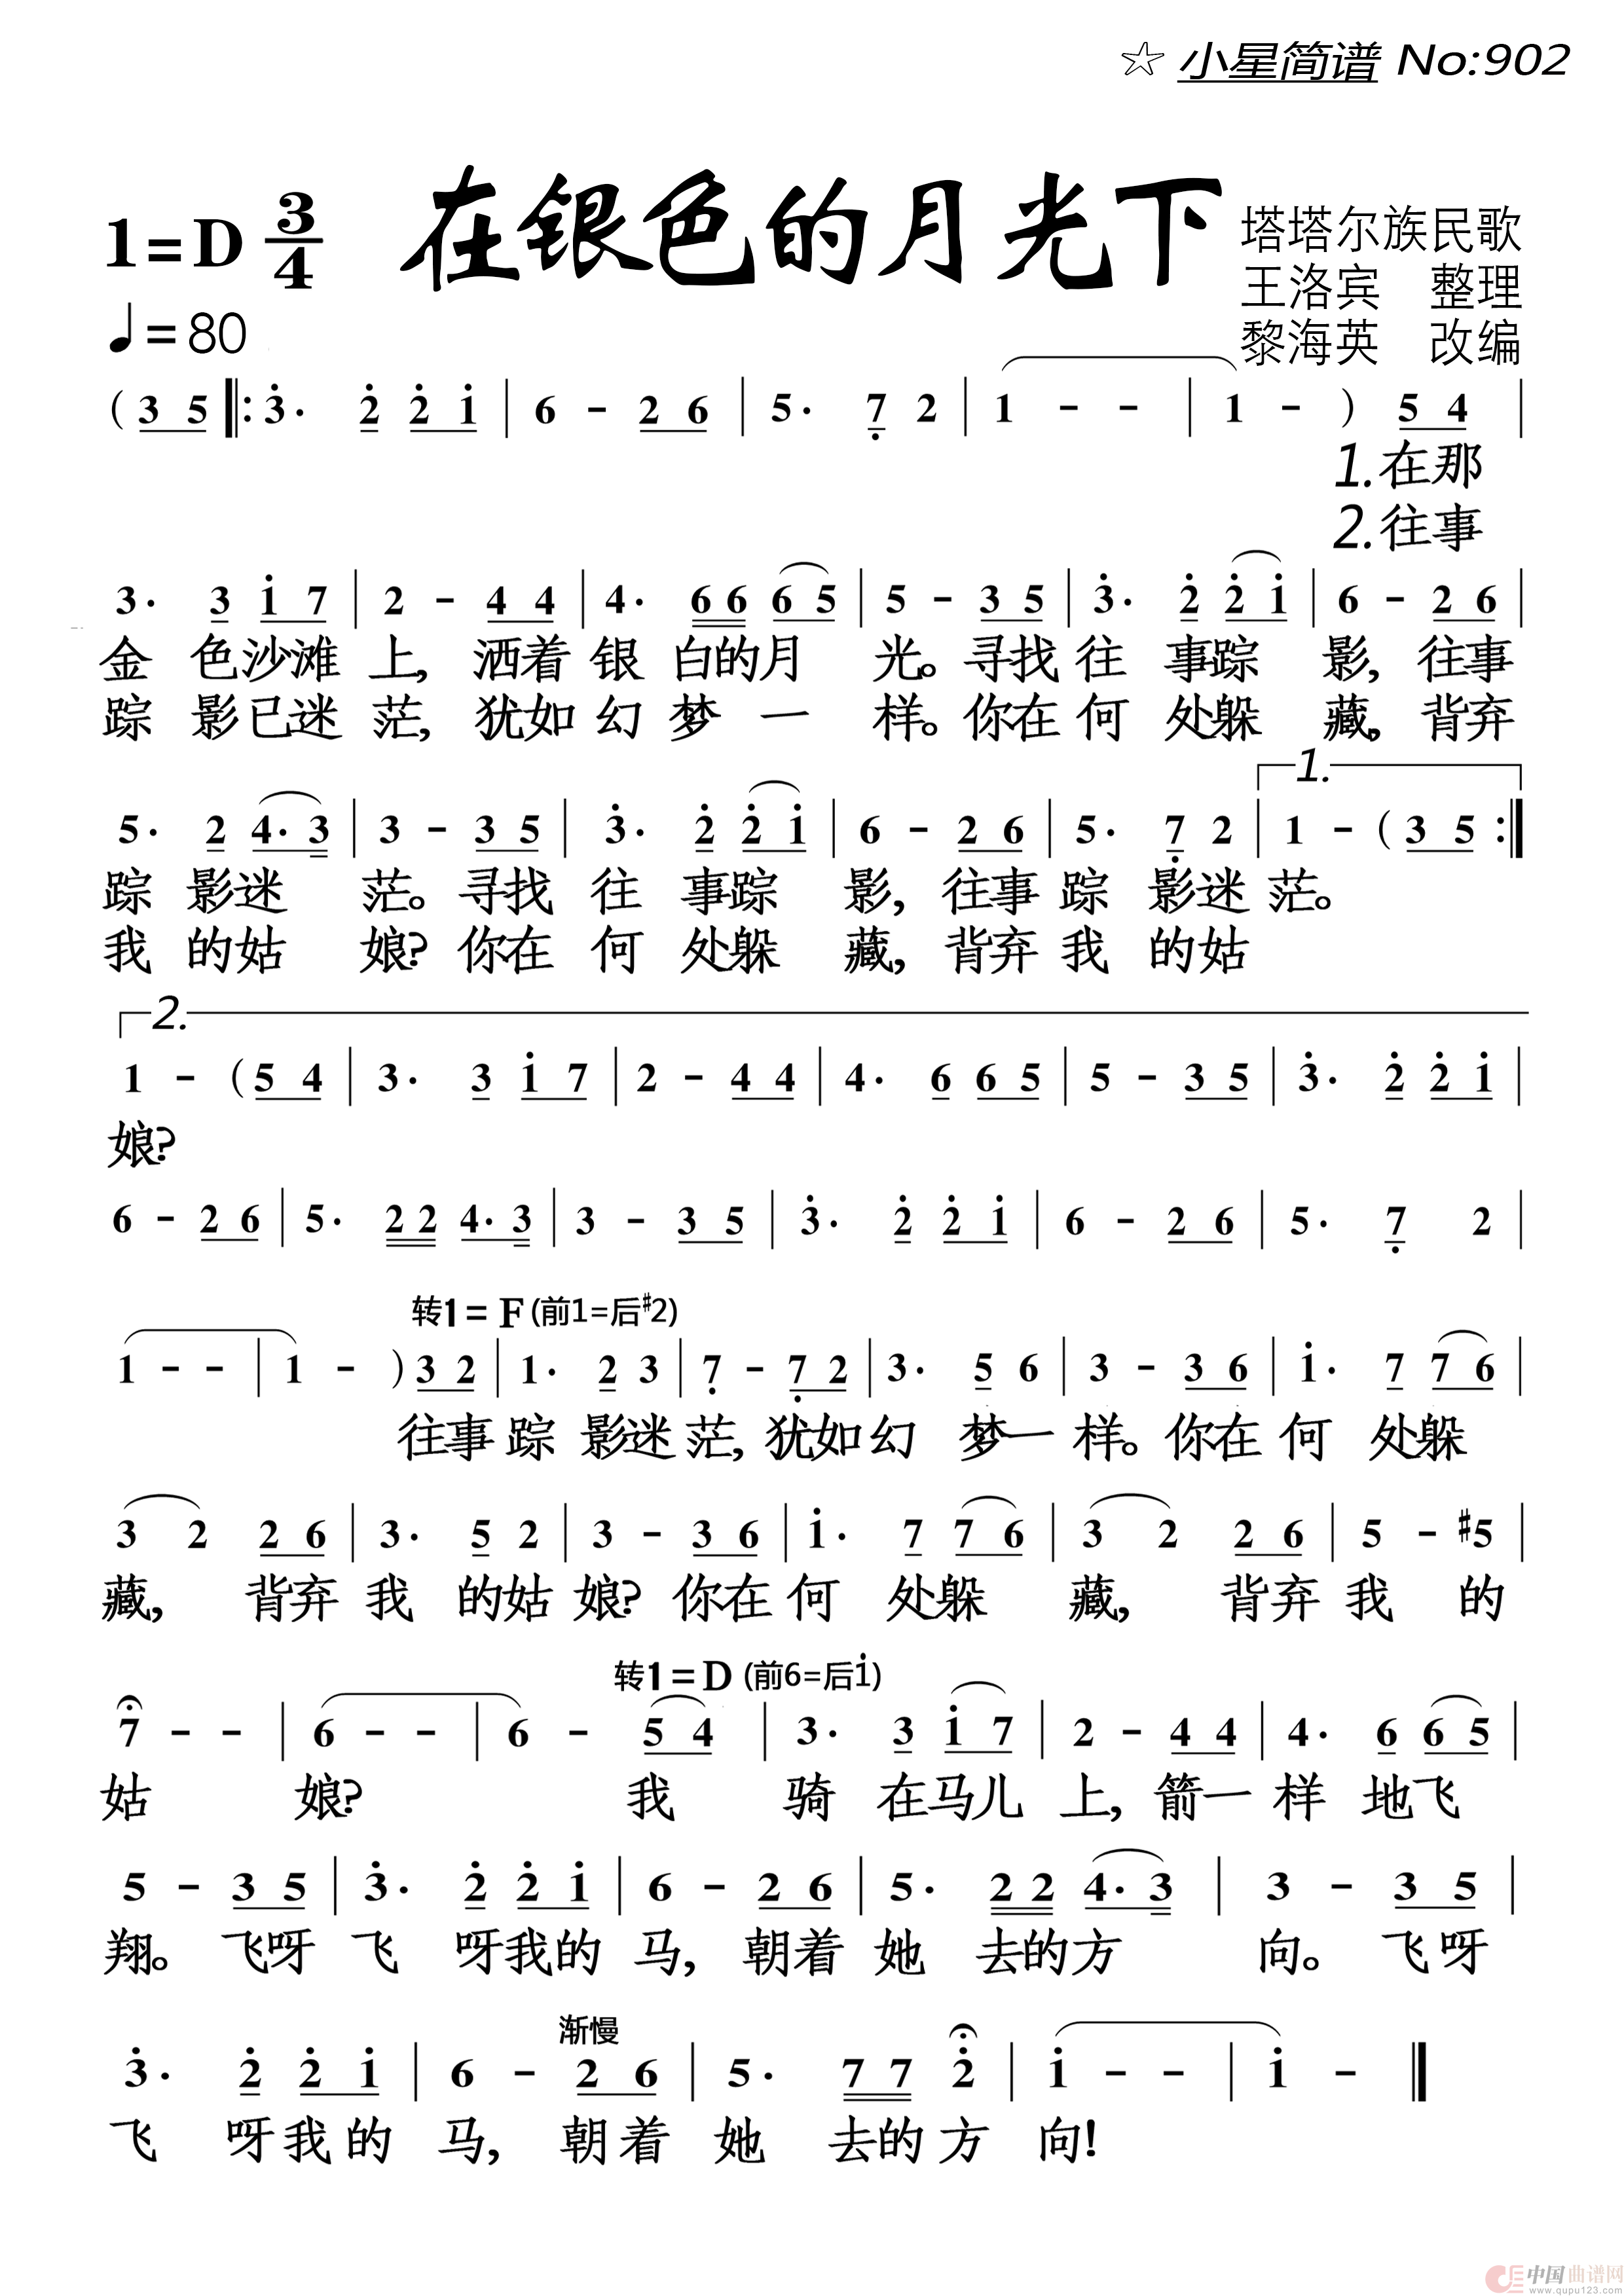 ☆ 小星简谱 No:902
在银色的月光下
1=D 3/4
塔塔尔族民歌
王洛宾 整理
♩=80
黎海英 改编
( 3 5 ‖: 3̇· 2̇ 2̇ 1̇ | 6 - 2 6 | 5· 7̣ 2 | 1 - - | 1 - ) 5 4 |
1.在那
2.往事
3· 3 1̇ 7 | 2 - 4 4 | 4· 6 6 6 5 | 5 - 3 5 | 3̇· 2̇ 2̇ 1̇ | 6 - 2 6 |
金 色沙滩 上, 洒着 银 白的月 光。寻找 往 事踪 影, 往事
踪 影已迷 茫, 犹如 幻 梦 一 样。你在 何 处躲 藏, 背弃
1.
5· 2 4· 3 | 3 - 3 5 | 3̇· 2̇ 2̇ 1̇ | 6 - 2 6 | 5· 7̣ 2 | 1 - ( 3 5 :‖
踪 影迷 茫。寻找 往 事踪 影, 往事 踪 影迷 茫。
我 的姑 娘?你在 何 处躲 藏, 背弃 我 的姑
2.
1 - ( 5 4 | 3· 3 1̇ 7 | 2 - 4 4 | 4· 6 6 5 | 5 - 3 5 | 3̇· 2̇ 2̇ 1̇ |
娘?
6 - 2 6 | 5· 2 2 4· 3 | 3 - 3 5 | 3̇· 2̇ 2̇ 1̇ | 6 - 2 6 | 5· 7̣ 2 |
转1= F (前1=后#2)
1 - - | 1 - ) 3 2 | 1· 2 3 | 7̣ - 7̣ 2 | 3· 5 6 | 3 - 3 6 | 1̇· 7 7 6 |
往事 踪 影迷 茫, 犹如 幻 梦一 样。你在 何 处躲
3 2 2 6 | 3· 5 2 | 3 - 3 6 | 1̇· 7 7 6 | 3 2 2 6 | 5 - #5 |
藏, 背弃 我 的姑 娘?你在 何 处躲 藏, 背弃 我 的
转1=D (前6=后1̇)
7 - - | 6 - - | 6 - 5 4 | 3· 3 1̇ 7 | 2 - 4 4 | 4· 6 6 5 |
姑 娘? 我 骑 在马儿 上, 箭一 样 地飞
5 - 3 5 | 3̇· 2̇ 2̇ 1̇ | 6 - 2 6 | 5· 2 2 4· 3 | 3 - 3 5 |
翔。 飞呀 飞 呀我的 马, 朝着 她 去的方 向。 飞呀
渐慢
3̇· 2̇ 2̇ 1̇ | 6 - 2 6 | 5· 7 7 2̇ | 1̇ - - | 1̇ - ‖
飞 呀我的 马, 朝着 她 去的方 向!
中国曲谱网
www.qupu123.com